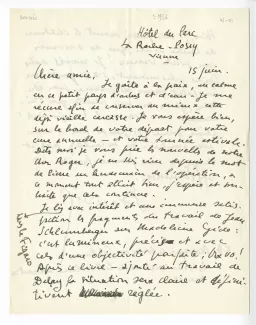 Hôtel du Parc
La Roche-Posay
Vienne
15 juin.
Chère amie,
Je goûte ici en paix, au calme
en ce petit pays d'arbres et d'eau - Je me
de mieux cette
déjà vieille Je vous espère bien,
sur le bord de votre départ pour votre
cure annuelle - et votre tournée estivale.
Dites moi je vous prie les nouvelles de notre
don Roger, je n'ai rien depuis le mot
de lui au lendemain de l'opération, à
ce moment tout allait bien. J'espère et souhaite
que ça continue.
Je lis avec intérêt et une immense satisfaction
les fragments du travail de Jean
Schlumberger sur Madeleine Gide :
c'est lumineux, précis et avec
cela d'une objectivité parfaite ; bravo !
Après ce livre - ajouté au travail de
Delay la situation sera claire et définitivement
réglée.
dans le Figaro